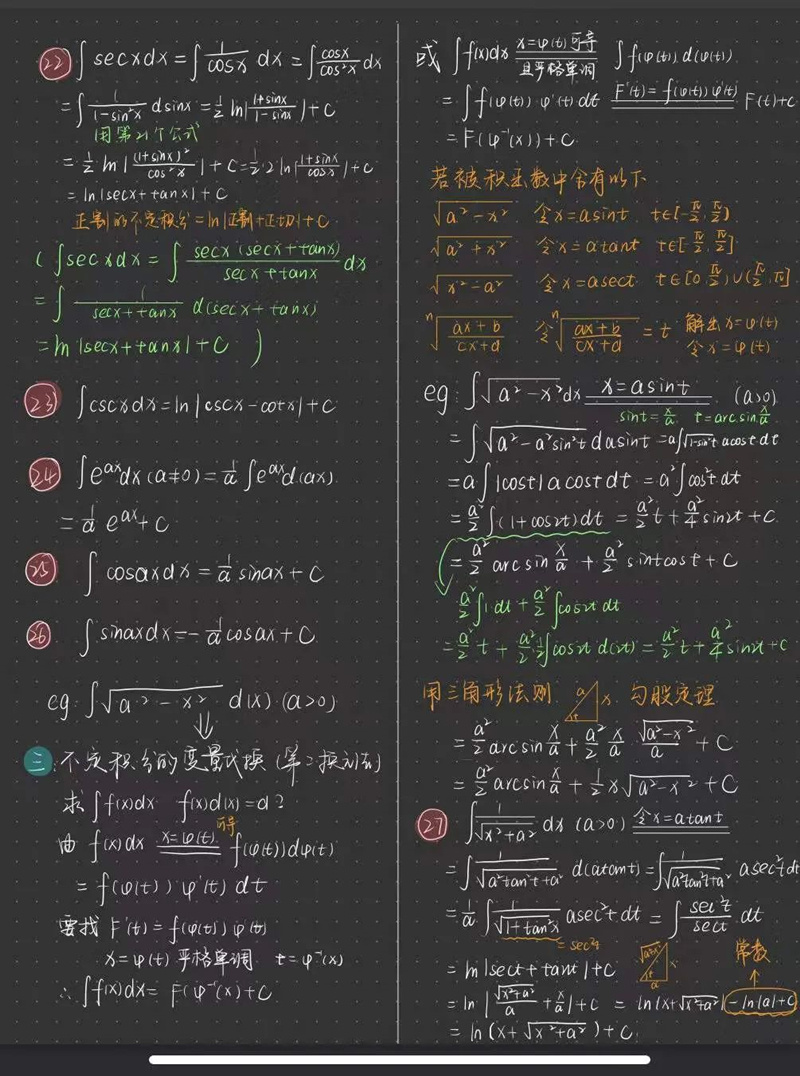 22 ∫secxdx = ∫ 1/cosx dx = ∫ cosx/cos²x dx
= ∫ 1/(1-sin²x) dsinx = 1/2 ln|(1+sinx)/(1-sinx)| + C
用第21个公式
= 1/2 ln|(1+sinx)²/cos²x| + C = 1/2·2 ln|(1+sinx)/cosx| + C
= ln|secx+tanx| + C
正割的不定积分 = ln|正割+正切| + C
( ∫secxdx = ∫ secx(secx+tanx)/(secx+tanx) dx
= ∫ 1/(secx+tanx) d(secx+tanx)
= ln|secx+tanx| + C )
23 ∫cscxdx = ln|cscx-cotx| + C
24 ∫e^(ax)dx (a≠0) = 1/a ∫e^(ax)d(ax)
= 1/a e^(ax) + C
25 ∫cosaxdx = 1/a sinax + C
26 ∫sinaxdx = -1/a cosax + C
eg. ∫√(a²-x²) d(x) (a>0)
⇓
三. 不定积分的变量代换 (第二换元法)
求∫f(x)dx f(x)d(x)=d?
由 f(x)dx x=φ(t) 可导 f(φ(t))dφ(t)
= f(φ(t))φ'(t) dt
要找 F'(t) = f(φ(t))φ'(t)
x=φ(t) 严格单调 t=φ⁻¹(x)
∴ ∫f(x)dx = F(φ⁻¹(x)) + C
或 ∫f(x)dx x=φ(t)可导 且严格单调 ∫f(φ(t))d(φ(t))
= ∫f(φ(t))·φ'(t)dt F'(t)=f(φ(t))φ'(t) F(t)+C
= F(φ⁻¹(x)) + C
若被积函数中含有以下
√(a²-x²) 令x=asint t∈[-π/2, π/2]
√(a²+x²) 令x=atant t∈[-π/2, π/2]
√(x²-a²) 令x=asect t∈[0, π/2)∪(π/2, π]
ⁿ√((ax+b)/(cx+d)) 令 ⁿ√((ax+b)/(cx+d)) = t 解出x=φ(t)
令x=φ(t)
eg. ∫√(a²-x²)dx x=asint (a>0)
sint=x/a t=arcsin x/a
= ∫√(a²-a²sin²t) dasint = a∫√(1-sin²t) acostdt
= a∫|cost|acostdt = a²∫cos²tdt
= a²/2 ∫(1+cos2t)dt = a²/2 t + a²/4 sin2t + C
= a²/2 arcsin x/a + a²/2 sintcost + C
a²/2 ∫1dt + a²/2 ∫cos2tdt
= a²/2 t + a²/2·1/2 ∫cos2td(2t) = a²/2 t + a²/4 sin2t + C
用三角形法则 a x t 勾股定理
= a²/2 arcsin x/a + a²/2 x/a · √(a²-x²)/a + C
= a²/2 arcsin x/a + 1/2 x√(a²-x²) + C
27 ∫ 1/√(x²+a²) dx (a>0) 令x=atant
= ∫ 1/√(a²tan²t+a²) d(atant) = ∫ 1/√(a²tan²t+a²) asec²tdt
= 1/a ∫ 1/√(1+tan²x) asec²tdt = ∫ sec²t/sect dt
= sec²t
= ln|sect+tant| + C √(a²+x²) x t a 常数
= ln|√(x²+a²)/a + x/a| + C = ln|x+√(x²+a²)| -ln|a|+C
= ln(x+√(x²+a²)) + C